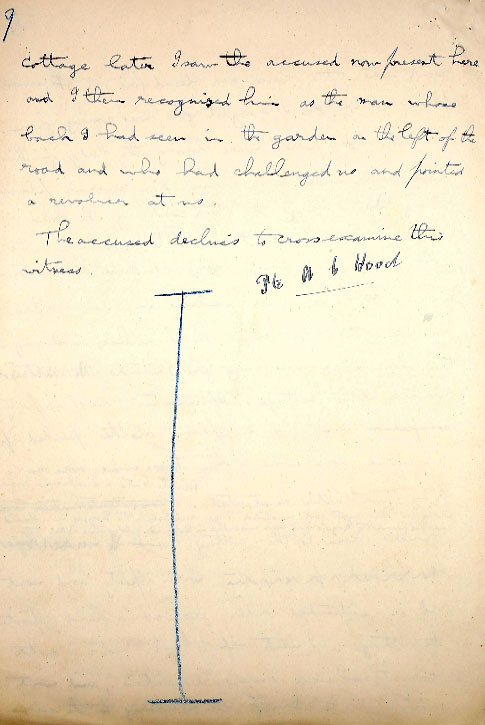 9
cottage later I saw the accused now present here
and I then recognised him as the man whose
back I had seen in the garden on the left of the
road and who had challenged us and pointed
a revolver at us.
The accused declines to cross examine this
witness.
Pte A L Wood